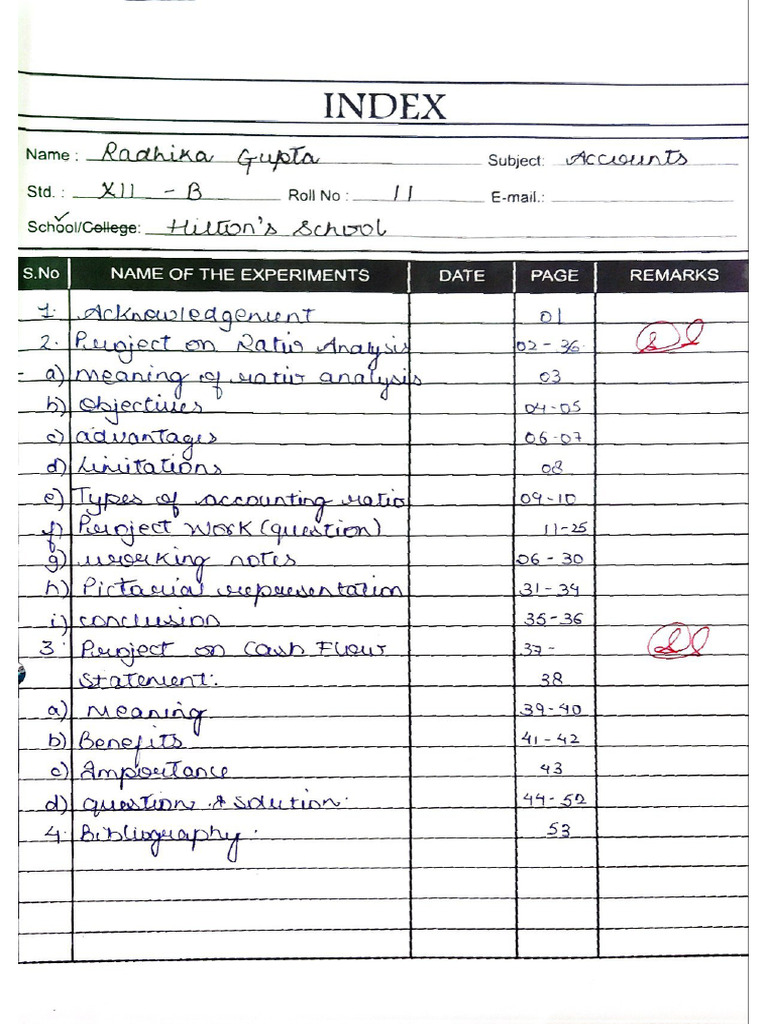 INDEX
Name : Radhika Gupta Subject: Accounts
Std. : XII - B Roll No : 11 E-mail.:
School/College: Hilton's School
S.No NAME OF THE EXPERIMENTS DATE PAGE REMARKS
1. Acknowledgement 01
2. Project on Ratio Analysis 02-36.
a) Meaning of ratio analysis 03
b) Objectives 04-05
c) advantages 06-07
d) Limitations 08
e) Types of accounting ratio 09-10
f) Project Work (question) 11-25
g) working notes 06-30
h) Pictorial representation 31-34
i) conclusion 35-36
3. Project on Cash Flow 37-
Statement. 38
a) Meaning 39-40
b) Benefits 41-42
c) Importance 43
d) question & solution. 44-52
4. Bibliography. 53